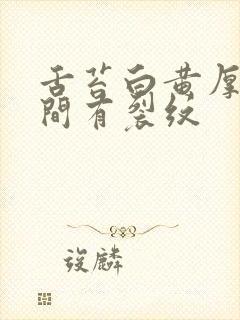 舌苔白黄厚
間有裂纹
筱麟